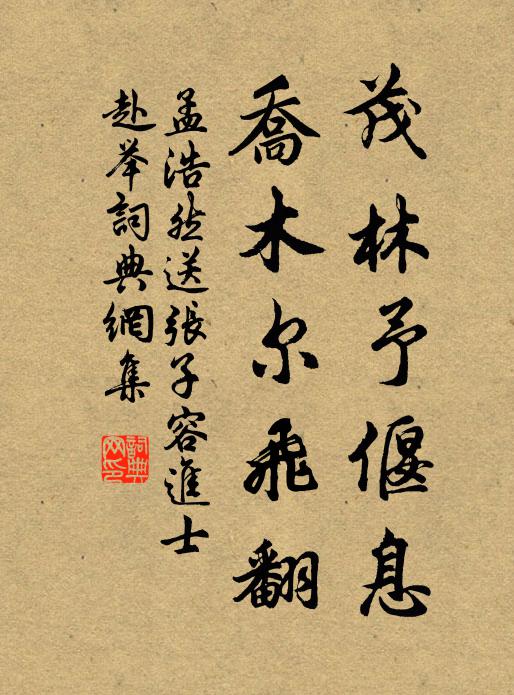 茂林予偃息
喬木尔飛翻
孟浩然送張子容進士
赴举詞典網集
詞典網印